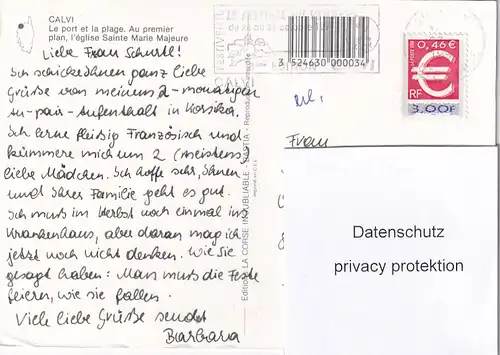 CALVI
Le port et la plage. Au premier
plan, l'église Sainte Marie Majeure
Liebe Frau Schurtl!
Ich schicke Ihnen ganz liebe
Grüße von meinem 2-monatigen
Au-pair-Aufenthalt in Korsika.
Ich lerne fleißig Französisch und
kümmere mich um 2 (meistens)
liebe Mädchen. Ich hoffe sehr, Ihnen
und Ihrer Familie geht es gut.
Ich muss im Herbst noch einmal ins
Krankenhaus, aber daran mag ich
jetzt noch nicht denken. Wie Sie
gesagt haben: Man muss die Feste
feiern, wie sie fallen.
Viele liebe Grüße sendet
Barbara
Editions LA CORSE INOUBLIABLE BASTIA - Reproduction
3 524630 000034
0,46 €
RF
3,00F
Frau
Datenschutz
privacy protektion